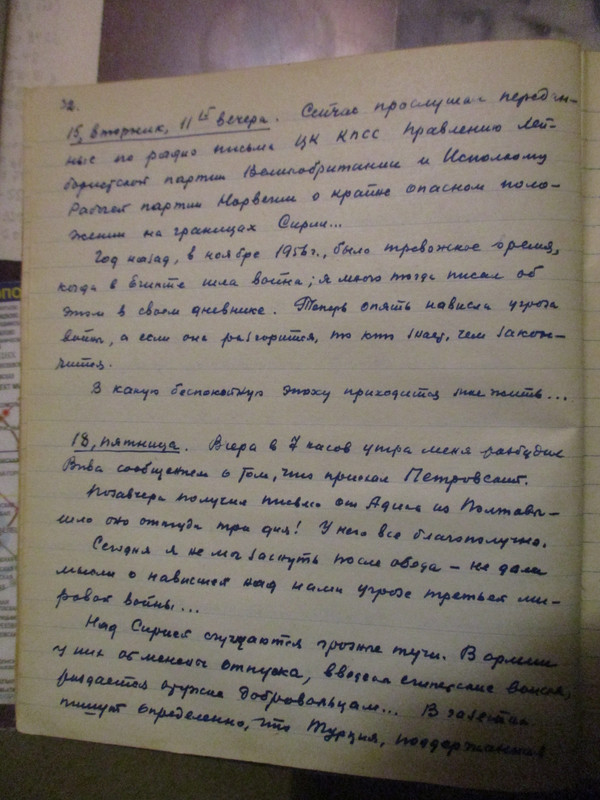 32.
15, вторник, 11 ч вечера. Сейчас прослушал передан-
ные по радио письма ЦК КПСС Правлению Лей-
бористской партии Великобритании и Исполкому
Рабочей партии Норвегии о крайне опасном поло-
жении на границах Сирии...
Год назад, в ноябре 1956 г., было тревожное время,
когда в Египте шла война; я много тогда писал об
этом в своем дневнике. Теперь опять нависла угроза
войны, а если она разгорится, то кто знает, чем закон-
чится.
В какую беспокойную эпоху приходится мне жить...
18, пятница. Вчера в 7 часов утра меня разбудил
сообщением о том, что приехал Петровский.
Позавчера получил письмо от Адика из Полтавы -
шло оно оттуда три дня! У него все благополучно.
Сегодня я не мог заснуть после обеда - не дали
мысли о нависшей над нами угрозе третьей ми-
ровой войны...
Над Сирией сгущаются грозные тучи. В армии
у них отменены отпуска, введены египетские войска,
раздается оружие добровольцам... В газетах
пишут определенно, что Турция, поддержанная